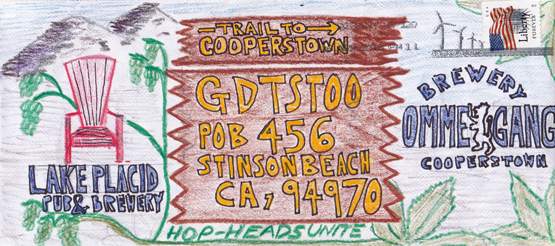 TRAIL TO
COOPERSTOWN
GDTSTOO
POB 456
STINSON BEACH
CA, 94970
LAKE PLACID
PUB & BREWERY
BREWERY
OMMEGANG
COOPERSTOWN
HOP-HEADS UNITE
Liberty
FOREVER